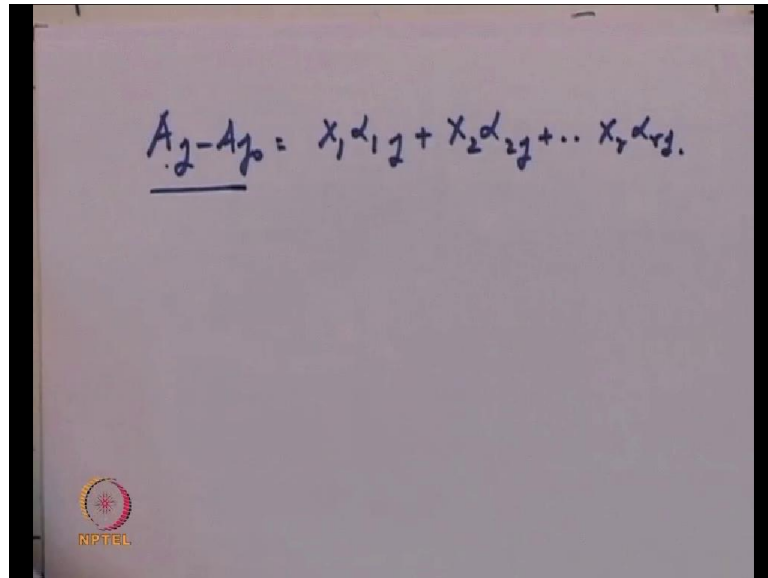 Aj - Aj₀ = X₁ α₁j + X₂ α₂j + .. Xᵣ αᵣj.
NPTEL